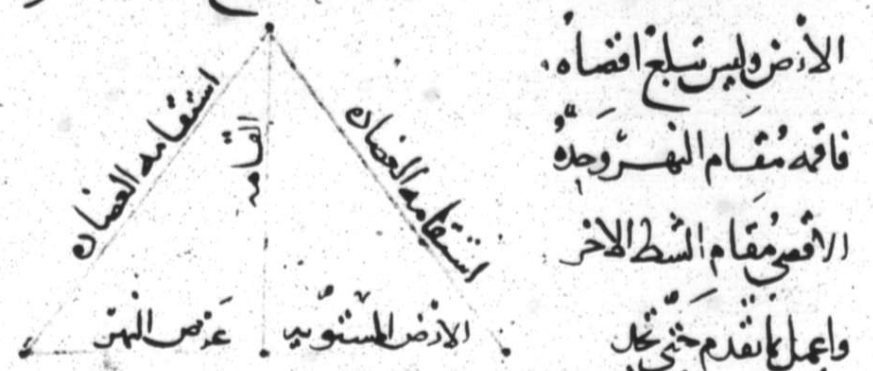 الأرض وليس تبلغ اقصاه
فاقمه مُقَام النهر وَحدّهُ
الاقصى مُقَام الشط الاخر
واعمل بما تقدم حَتّى تجد
استقامه العضاده
القامه
استقامه العضاده
عَرض النهر
الارض المستويه